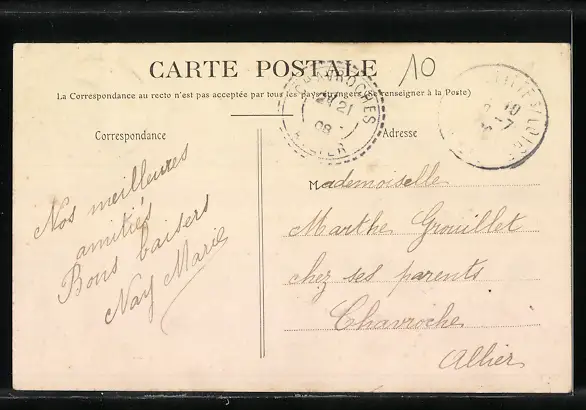 CARTE POSTALE
10
La Correspondance au recto n'est pas acceptée par tous les pays étrangers (Se renseigner à la Poste)
CHAVROCHES
21
08
ALLIER
Correspondance
Adresse
Nos meilleures
amitiés
Bons baisers
Nay Marie
Mademoiselle
Marthe Grouillet
chez ses parents
Chavroche
Allier